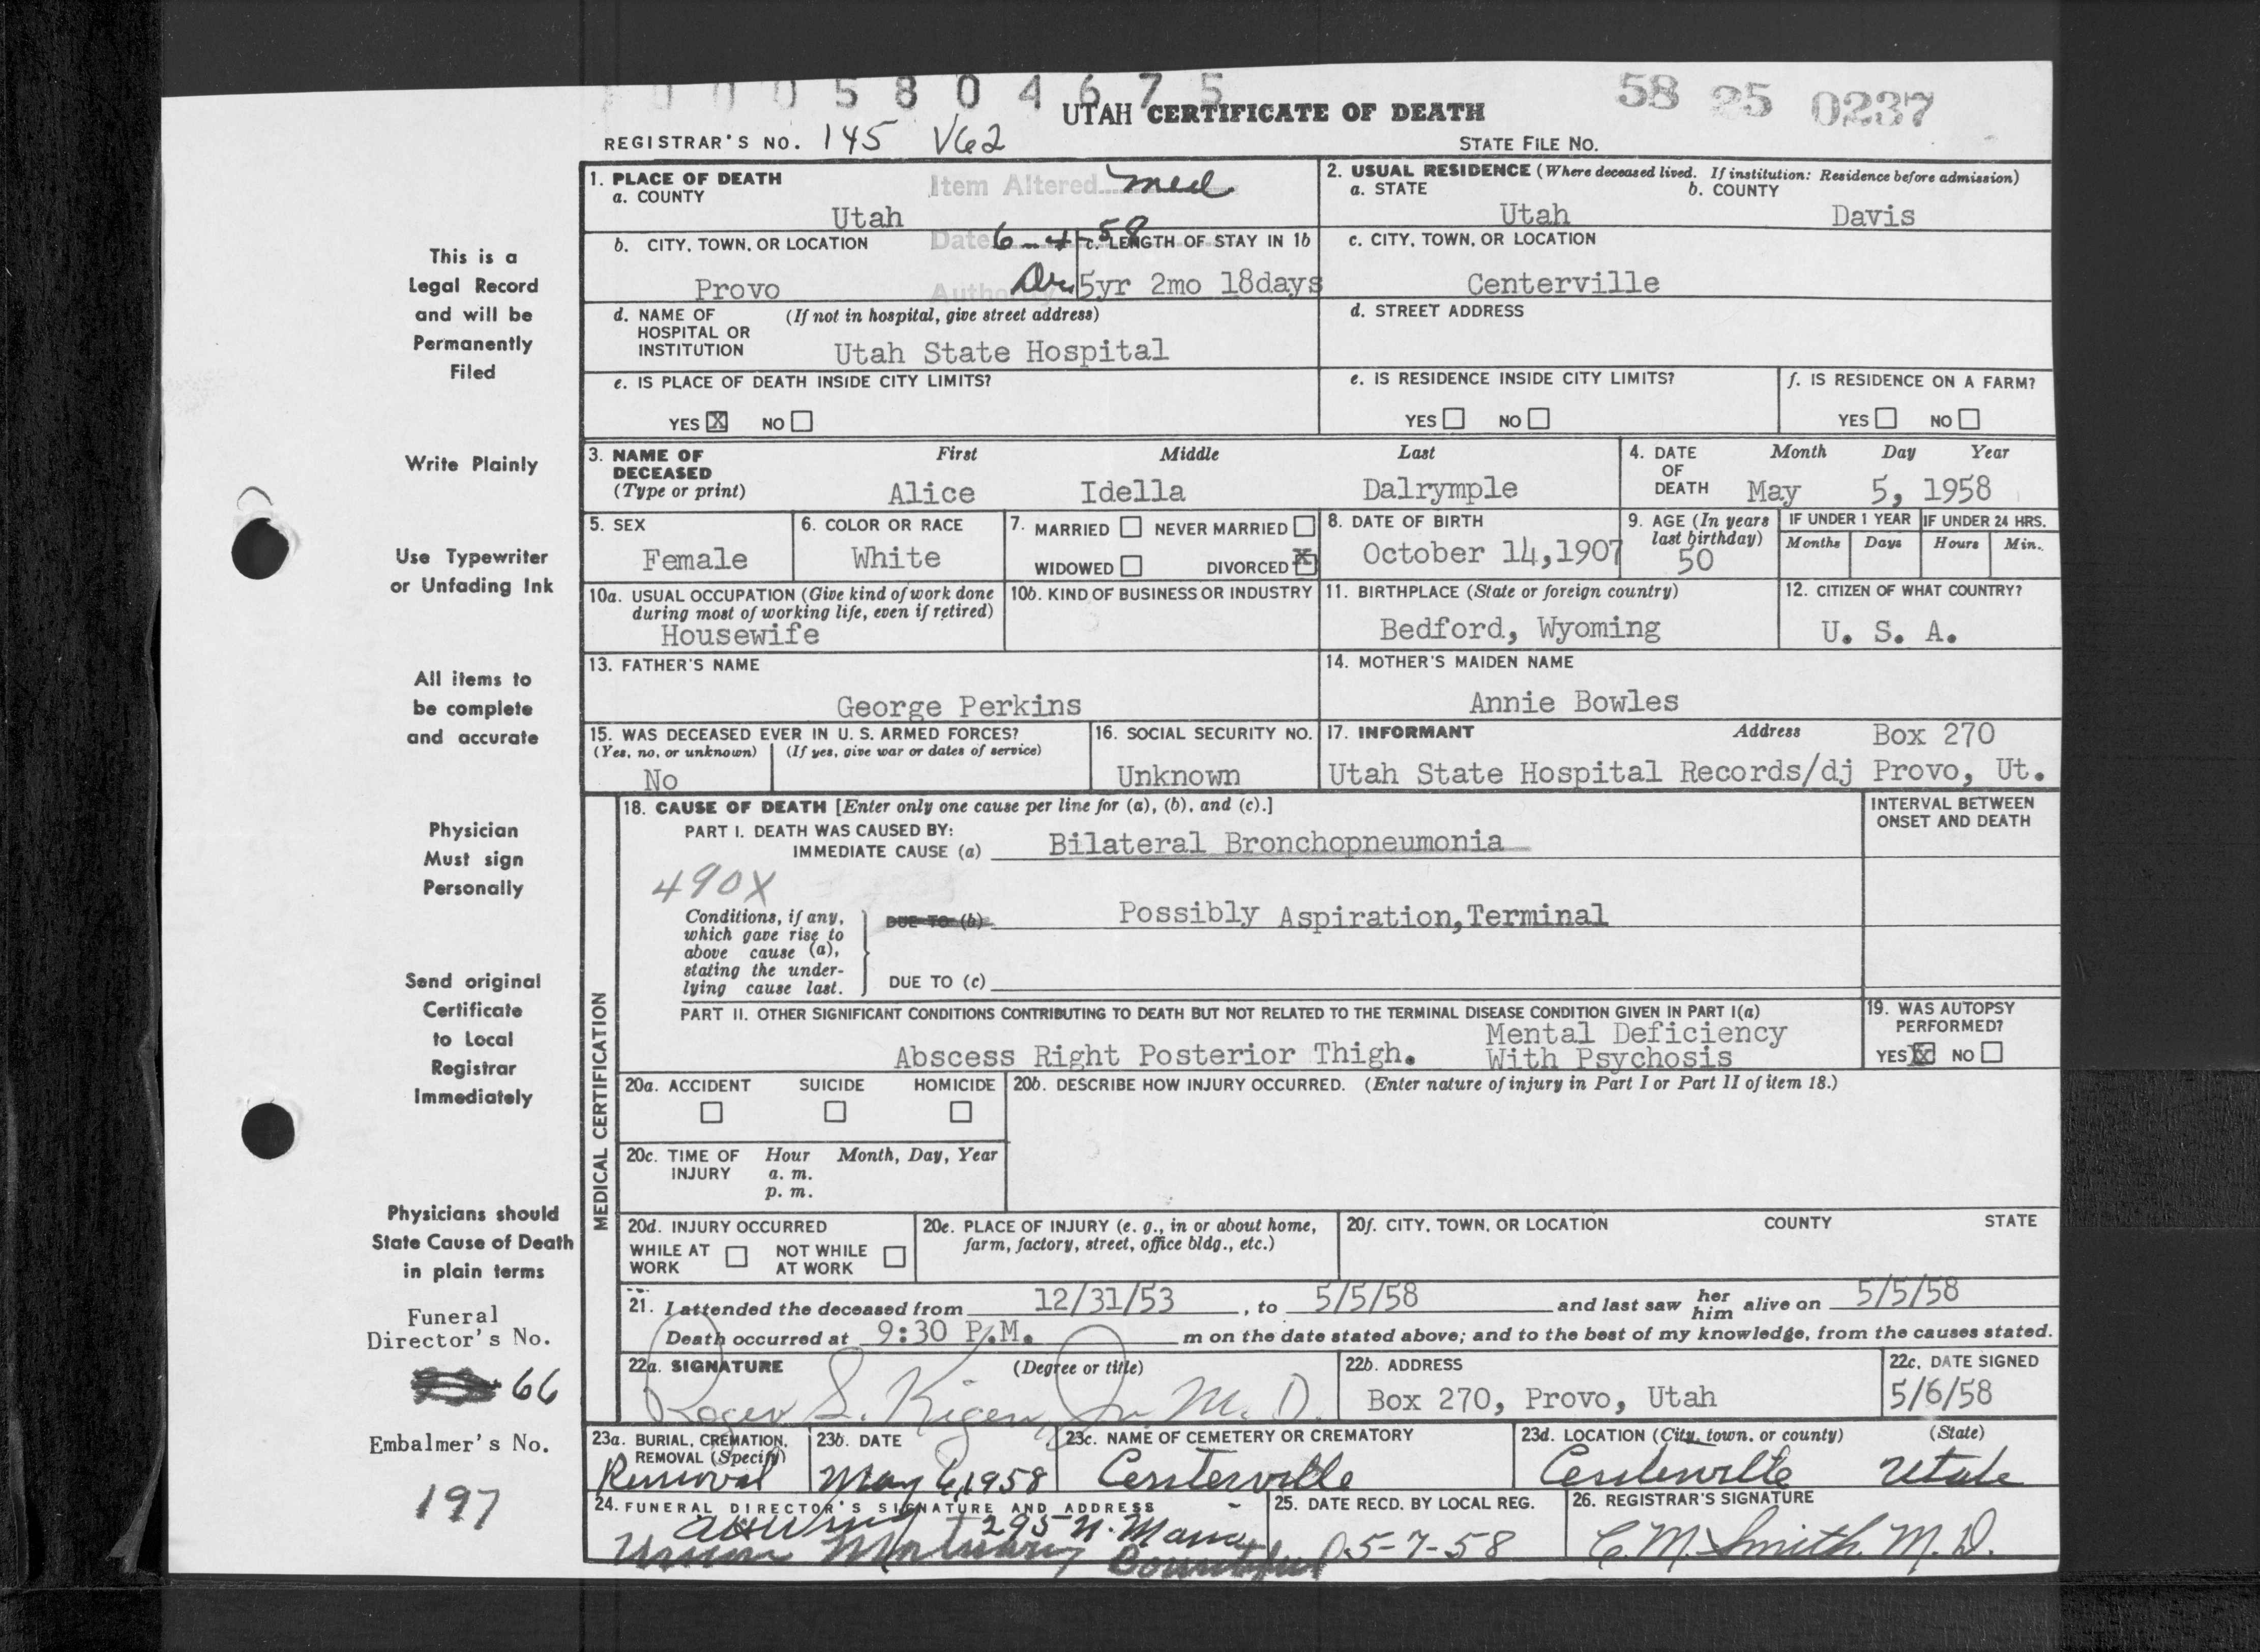 0 0 0 5 8 0 4 6 7 5
58 25 0237
UTAH CERTIFICATE OF DEATH
REGISTRAR'S NO. 145 V62
STATE FILE NO.
This is a
Legal Record
and will be
Permanently
Filed
Write Plainly
Use Typewriter
or Unfading Ink
All items to
be complete
and accurate
Physician
Must sign
Personally
Send original
Certificate
to Local
Registrar
Immediately
Physicians should
State Cause of Death
in plain terms
Funeral
Director's No.
66
Embalmer's No.
197
1. PLACE OF DEATH
a. COUNTY
Utah
Item Altered med
Date 6-4-58
Authority
2. USUAL RESIDENCE (Where deceased lived. If institution: Residence before admission)
a. STATE b. COUNTY
Utah Davis
b. CITY, TOWN, OR LOCATION
Provo
c. LENGTH OF STAY IN 1b
5yr 2mo 18days
c. CITY, TOWN, OR LOCATION
Centerville
d. NAME OF (If not in hospital, give street address)
HOSPITAL OR
INSTITUTION Utah State Hospital
d. STREET ADDRESS
e. IS PLACE OF DEATH INSIDE CITY LIMITS?
YES X NO
e. IS RESIDENCE INSIDE CITY LIMITS?
YES NO
f. IS RESIDENCE ON A FARM?
YES NO
3. NAME OF First Middle Last
DECEASED
(Type or print) Alice Idella Dalrymple
4. DATE Month Day Year
OF
DEATH May 5, 1958
5. SEX
Female
6. COLOR OR RACE
White
7. MARRIED NEVER MARRIED
WIDOWED DIVORCED X
8. DATE OF BIRTH
October 14,1907
9. AGE (In years
last birthday)
50
IF UNDER 1 YEAR IF UNDER 24 HRS.
Months Days Hours Min.
10a. USUAL OCCUPATION (Give kind of work done
during most of working life, even if retired)
Housewife
10b. KIND OF BUSINESS OR INDUSTRY
11. BIRTHPLACE (State or foreign country)
Bedford, Wyoming
12. CITIZEN OF WHAT COUNTRY?
U. S. A.
13. FATHER'S NAME
George Perkins
14. MOTHER'S MAIDEN NAME
Annie Bowles
15. WAS DECEASED EVER IN U. S. ARMED FORCES?
(Yes, no, or unknown) (If yes, give war or dates of service)
No
16. SOCIAL SECURITY NO.
Unknown
17. INFORMANT Address Box 270
Utah State Hospital Records/dj Provo, Ut.
MEDICAL CERTIFICATION
18. CAUSE OF DEATH [Enter only one cause per line for (a), (b), and (c).]
PART I. DEATH WAS CAUSED BY:
IMMEDIATE CAUSE (a) Bilateral Bronchopneumonia
INTERVAL BETWEEN
ONSET AND DEATH
490X
Conditions, if any,
which gave rise to
above cause (a),
stating the under-
lying cause last.
DUE TO (b) Possibly Aspiration,Terminal
DUE TO (c)
PART II. OTHER SIGNIFICANT CONDITIONS CONTRIBUTING TO DEATH BUT NOT RELATED TO THE TERMINAL DISEASE CONDITION GIVEN IN PART I(a)
Mental Deficiency
Abscess Right Posterior Thigh. With Psychosis
19. WAS AUTOPSY
PERFORMED?
YES X NO
20a. ACCIDENT SUICIDE HOMICIDE
20b. DESCRIBE HOW INJURY OCCURRED. (Enter nature of injury in Part I or Part II of item 18.)
20c. TIME OF Hour Month, Day, Year
INJURY a. m.
p. m.
20d. INJURY OCCURRED
WHILE AT NOT WHILE
WORK AT WORK
20e. PLACE OF INJURY (e. g., in or about home,
farm, factory, street, office bldg., etc.)
20f. CITY, TOWN, OR LOCATION COUNTY STATE
21. I attended the deceased from 12/31/53, to 5/5/58 and last saw her him alive on 5/5/58
Death occurred at 9:30 P.M. m on the date stated above; and to the best of my knowledge, from the causes stated.
22a. SIGNATURE (Degree or title)
Roger S. Kiger, Jr. M. D.
22b. ADDRESS
Box 270, Provo, Utah
22c. DATE SIGNED
5/6/58
23a. BURIAL, CREMATION,
REMOVAL (Specify)
Removal
23b. DATE
May 6,1958
23c. NAME OF CEMETERY OR CREMATORY
Centerville
23d. LOCATION (City, town, or county) (State)
Centerville Utah
24. FUNERAL DIRECTOR'S SIGNATURE AND ADDRESS
295 N. Main
Union Mortuary Bountiful
25. DATE RECD. BY LOCAL REG.
5-7-58
26. REGISTRAR'S SIGNATURE
C. M. Smith M. D.